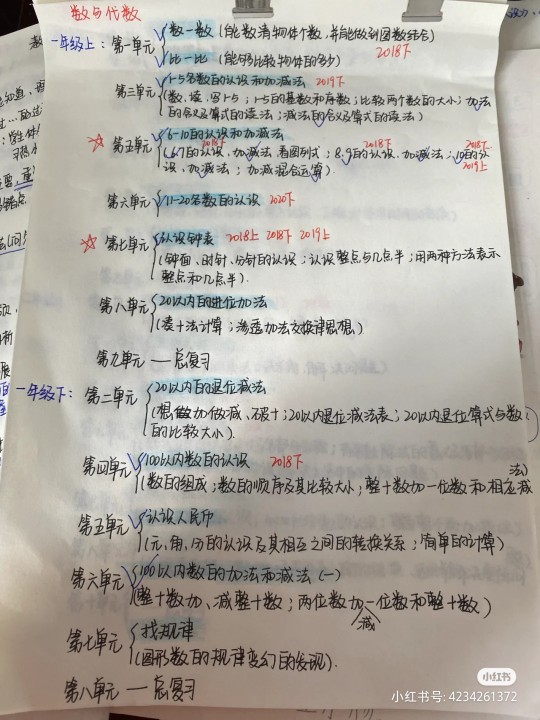 数与代数
一年级上:
第一单元
数一数(能数清物体个数,并能做到图数结合)
比一比(能够比较物体的多少)
2018下
第三单元
1-5各数的认识和加减法 2019下
(数、读、写1-5;1-5的基数和序数;比较两个数的大小;加法
的含义及算式的读法;减法的含义及算式的读法)
☆ 第五单元
6-10的认识和加减法
2018下 2018下 2018下
(6.7的认识、加减法、看图列式;8.9的认识、加减法;10的认
2019上
识、加减法;加减混合运算)
第六单元
11-20各数的认识 2020下
☆ 第七单元
认识钟表 2018上 2018下 2019上
(钟面、时针、分针的认识;认识整点与几点半;用两种方法表示
整点和几点半).
第八单元
20以内的进位加法
(凑十法计算;渗透加法交换律思想)
第九单元 — 总复习
一年级下:
第二单元
20以内的退位减法
(想做加做减、破十;20以内退位减法表;20以内退位算式与数
的比较大小).
第四单元
100以内数的认识 2018下
法)
(数的组成;数的顺序及其比较大小;整十数加一位数和相应减
第五单元
认识人民币
(元、角、分的认识及其相互之间的转换关系;简单的计算)
第六单元
100以内数的加法和减法(一)
(整十数加、减整十数;两位数加一位数和整十数)
减
第七单元
找规律
(图形数的规律变幻的发现).
第八单元 — 总复习
小红书
小红书号: 4234261372